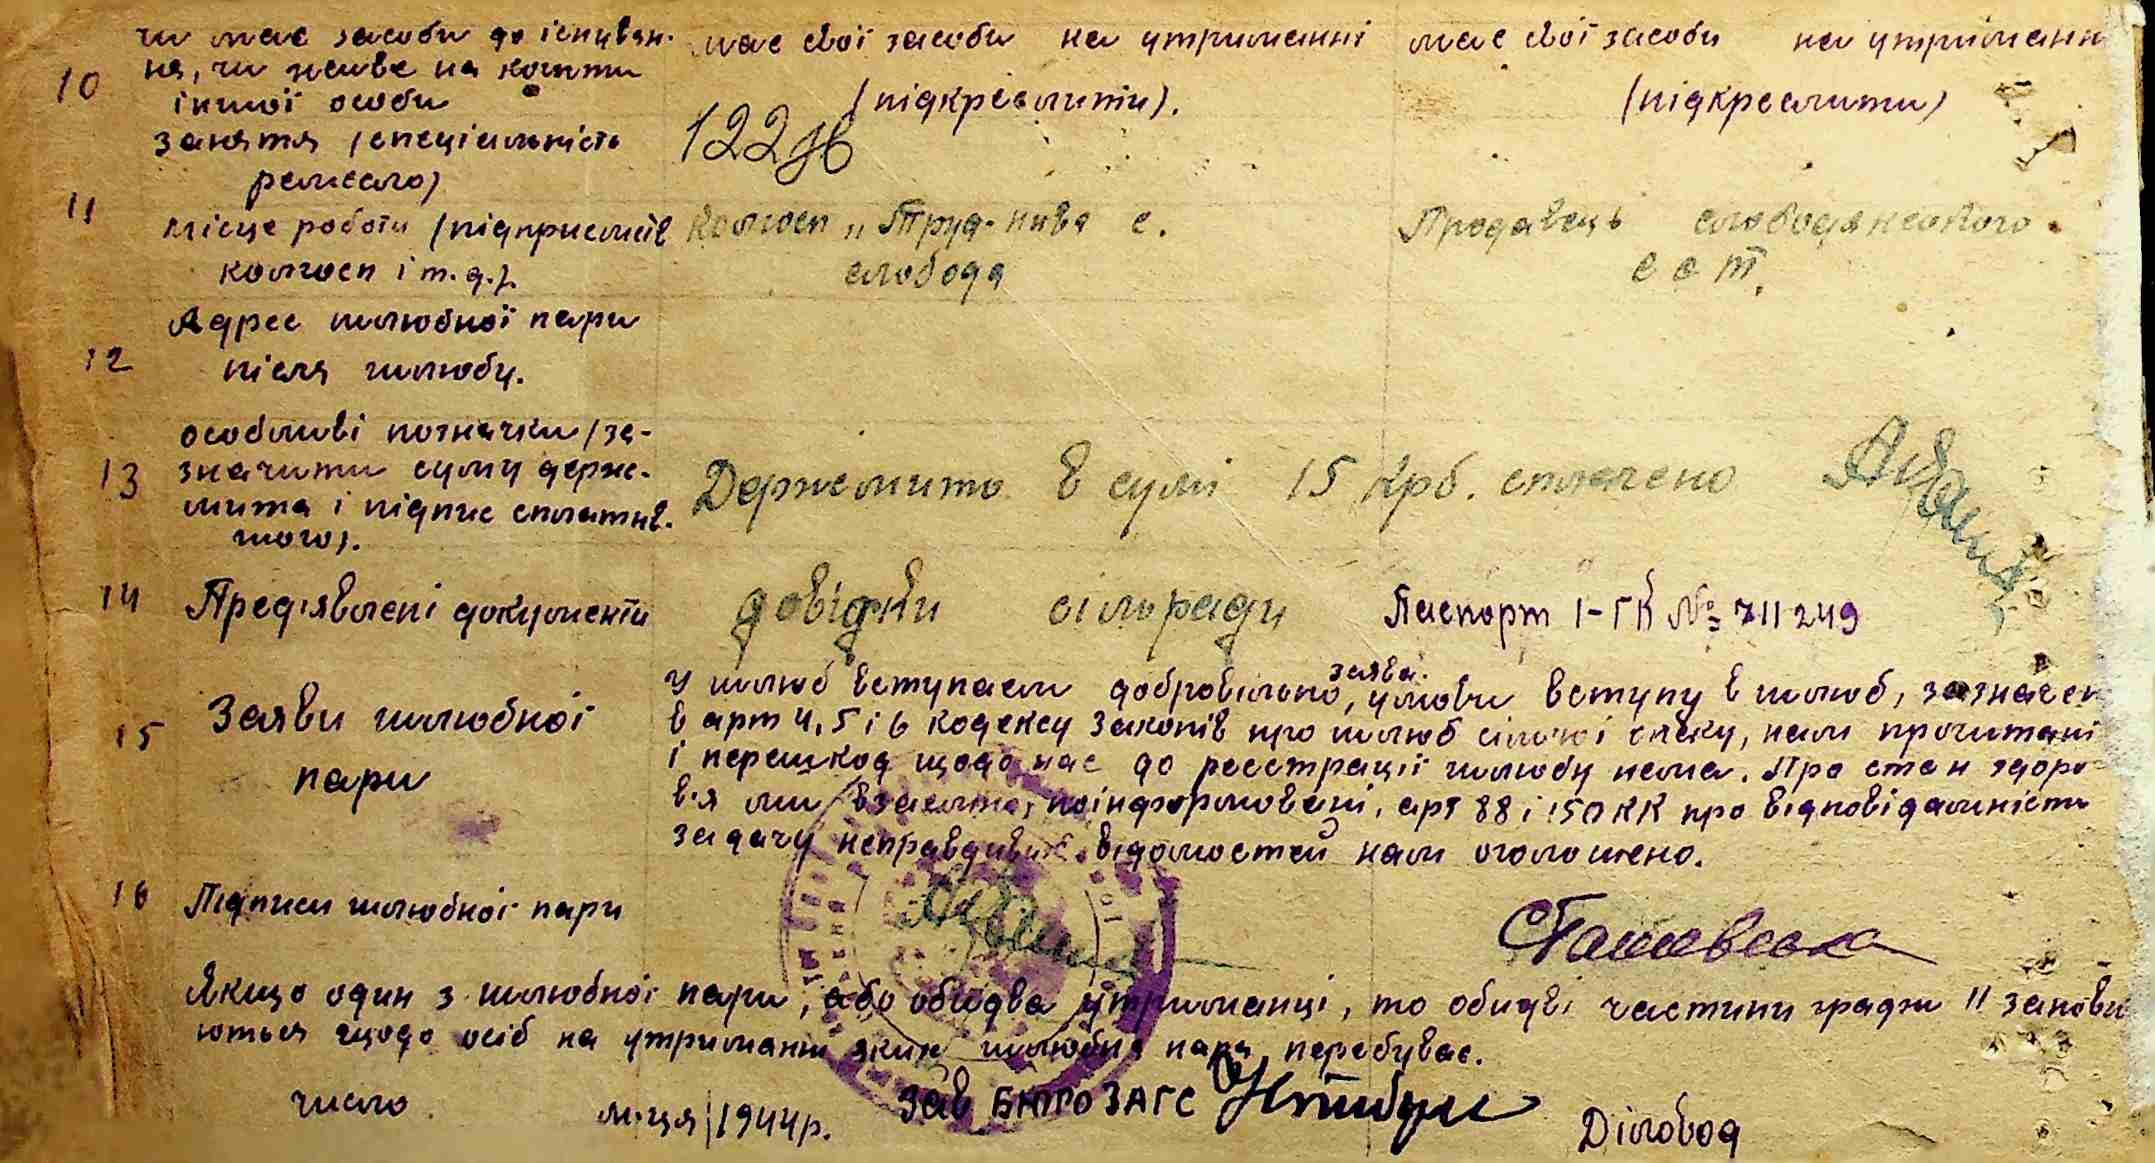 чи має засоби до існуван- має свої засоби на утриманні має свої засоби на утриманн
10 ня, чи живе на кошти
іншої особи (підкреслити). (підкреслити)
заняття (спеціальність 122
ремесло)
11 місце роботи (підприємств Колгосп „Труд-нива с. Продавець слободянського
колгосп і т.д.). слобода с с т.
Адрес шлюбної пари
12 після шлюбу.
особливі позначки (за-
13 значити суму держ- Держмито в сумі 15 крб. сплачено
мита і підпис сплатив-
шого).
14 Пред'явлені документи довідки сільради Паспорт І-ГК № 711249
заява.
15 Заяви шлюбної у шлюб вступаєм добровільно, умови вступу в шлюб, зазначен
в арт 4, 5 і 6 кодексу законів про шлюб сім'ю і опеку, нам прочитані
пари і перешкод щодо нас до реєстрації шлюбу нема. Про стан здоро-
в'я ми взаємно поінформовані, арт 88 і 150 КК про відповідальність
за дачу неправдивих відомостей нам оголошено.
16 Підписи шлюбної пари
Якщо один з шлюбної пари, або обидва утриманці, то обидві частини графи 11 заповн
юються щодо осіб на утриманні яких шлюбна пара перебуває.
число м-ця 1944р. Зав БЮРО ЗАГС Діловод